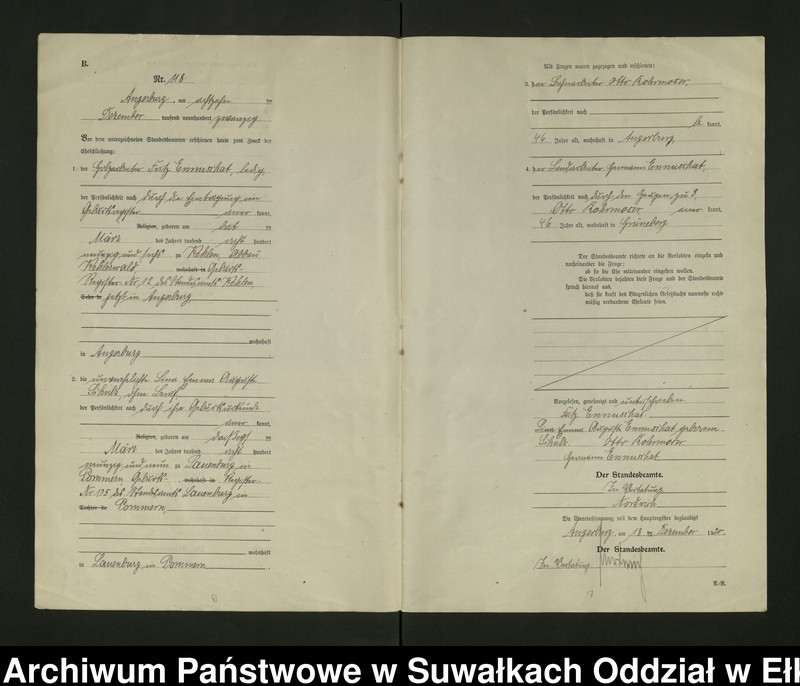 B.
Nr. 118
Angerburg, am achtzehn ten
Dezember tausend neunhundert zwanzig
Vor dem unterzeichneten Standesbeamten erschienen heute zum Zweck der
Eheschließung:
1. der Holzarbeiter Fritz Ennusikat, ledig
der Persönlichkeit nach durch die Eintragung im
Geburtsregister aner kannt,
Religion, geboren am
März des Jahres tausend acht hundert
neunzig und sechs zu Kehlen, Abbau
Kehlerwald, wohnhaft in Geburts-
Register Nr. 12 des Standesamts Kehlen
Sohn de jetzt in Angerburg
wohnhaft
in Angerburg
2. die unverehelichte Lina Emma Auguste
Schulz, ohne Beruf
der Persönlichkeit nach durch ihre Geburtsurkunde
aner kannt,
Religion, geboren am dreißigsten
März des Jahres tausend acht hundert
neunzig und neun zu Lauenburg in
Pommern Geburts- wohnhaft in Register
Nr. 105 des Standesamts Lauenburg in
Tochter de Pommern,
wohnhaft
in Lauenburg in Pommern
8
Als Zeugen waren zugezogen und erschienen:
3. der Otto Rohrmoser,
der Persönlichkeit nach
be kannt,
46 Jahre alt, wohnhaft in Angerburg,
4. der Landarbeiter Hermann Ennusikat,
der Persönlichkeit nach durch den Zeugen zu 3,
Otto Rohrmoser, aner kannt,
46 Jahre alt, wohnhaft in Grüneberg
Der Standesbeamte richtete an die Verlobten einzeln und
nacheinander die Frage:
ob sie die Ehe miteinander eingehen wollen.
Die Verlobten bejahten diese Frage und der Standesbeamte
sprach hierauf aus,
daß sie kraft des Bürgerlichen Gesetzbuchs nunmehr recht-
mäßig verbundene Eheleute seien.
Vorgelesen, genehmigt und unterschrieben
Fritz Ennusikat
Lina Emma Auguste Ennusikat geborene
Schulz Otto Rohrmoser
Hermann Ennusikat
Der Standesbeamte.
In Vertretung
Die Übereinstimmung mit dem Hauptregister beglaubigt
Angerburg, am 18 ten Dezember 1920.
Der Standesbeamte.
In Vertretung
R./R.
9
Archiwum Państwowe w Suwałkach Oddział w Ełk